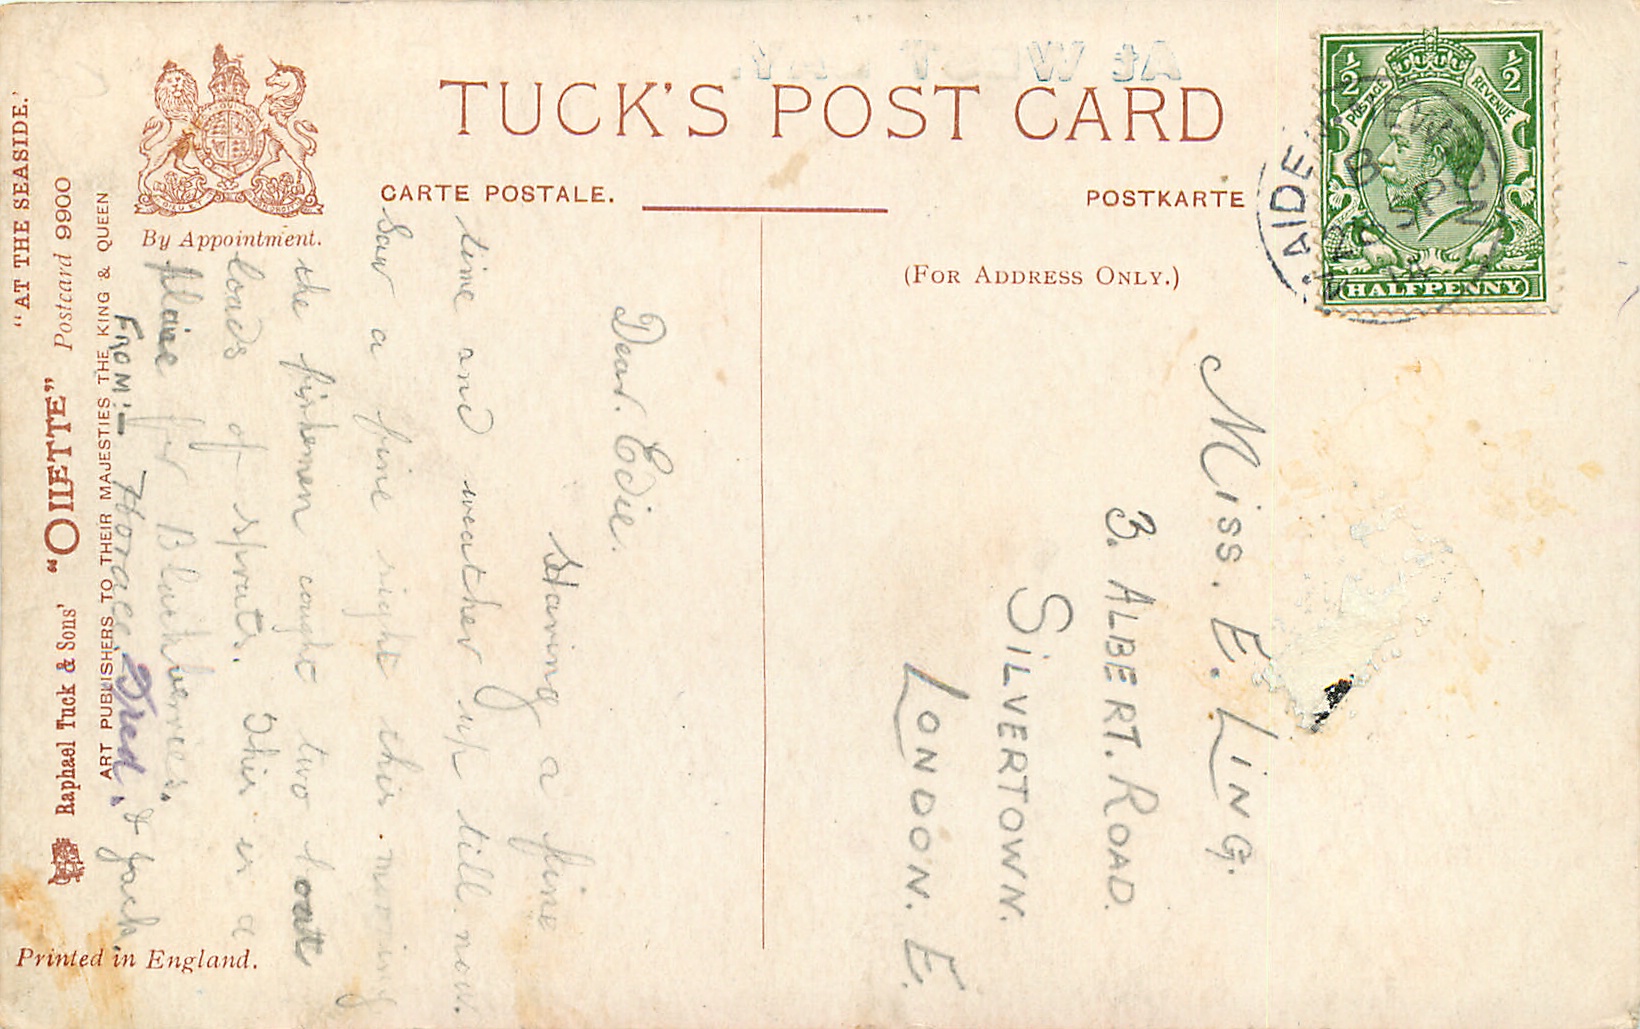 TUCK'S POST CARD
CARTE POSTALE.
POSTKARTE
(FOR ADDRESS ONLY.)
By Appointment.
"AT THE SEASIDE."
Raphael Tuck & Sons' "OILETTE" Postcard 9900
ART PUBLISHERS TO THEIR MAJESTIES THE KING & QUEEN
Printed in England.
At WEST BAY.
POSTAGE REVENUE
½ ½
HALFPENNY
B
SP
14
Dear. Edie.
Having a fine
time and weather up till now.
Saw a fine sight this morning
the fishermen caught two boat
loads of sprats. This is a
place for Blackberries.
FROM:- Horace. Fred. & Jack.
MISS. E. LING.
3. ALBERT. ROAD.
SILVERTOWN.
LONDON. E.